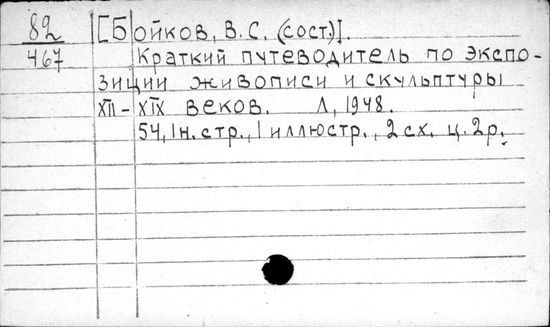 82 [Бойков, В. С. (сост.)].
467 Краткий путеводитель по экспо-
зиции живописи и скульптуры
XII - XIX веков. Л, 1948.
54, 1н. стр., 1 иллюстр., 2 сх. ц. 2р.